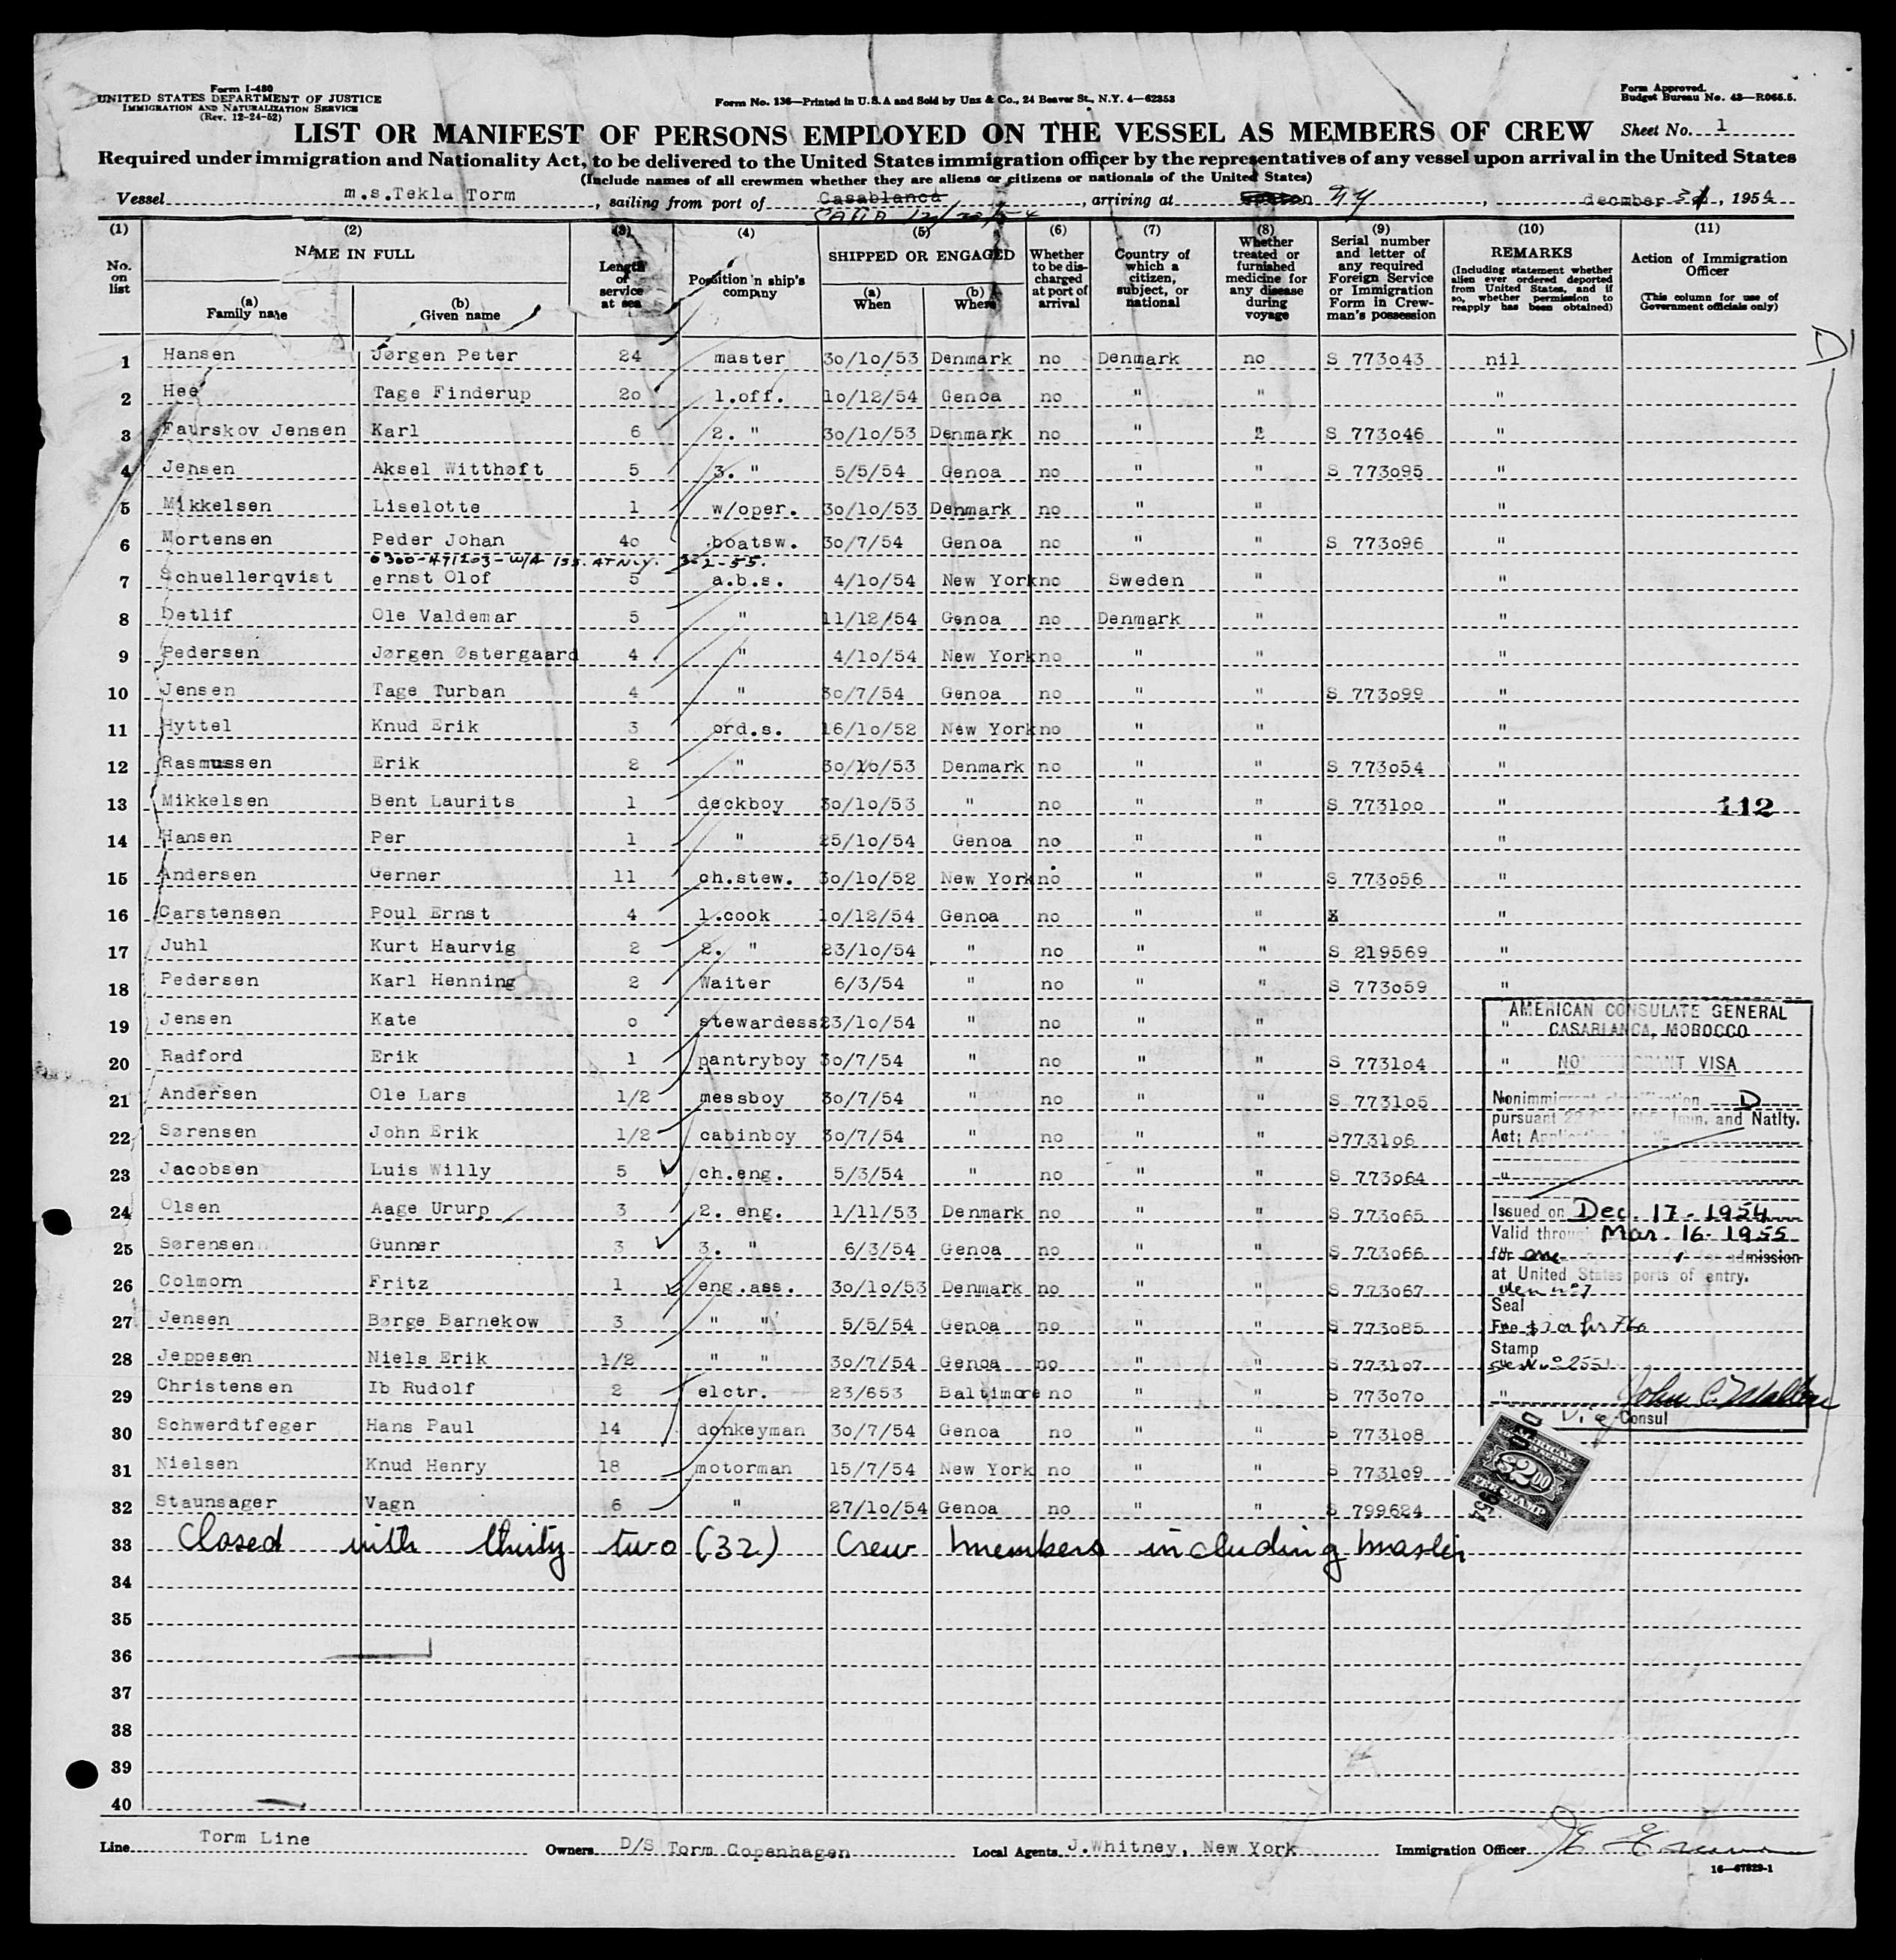 Form I-480
UNITED STATES DEPARTMENT OF JUSTICE
IMMIGRATION AND NATURALIZATION SERVICE
(Rev. 12-24-52)
Form No. 136—Printed in U.S.A and Sold by Unz & Co., 24 Beaver St., N.Y. 4—62353
Form Approved.
Budget Bureau No. 43—R065.5.
LIST OR MANIFEST OF PERSONS EMPLOYED ON THE VESSEL AS MEMBERS OF CREW Sheet No. 1
Required under immigration and Nationality Act, to be delivered to the United States immigration officer by the representatives of any vessel upon arrival in the United States
(Include names of all crewmen whether they are aliens or citizens or nationals of the United States)
Vessel m.s.Tekla Torm, sailing from port of Casablanca, arriving at NY, december, 1954
12/20/54
(1) (2) (3) (4) (5) (6) (7) (8) (9) (10) (11)
No. on list
NAME IN FULL
(a) Family name
(b) Given name
Length of service at sea
Position in ship's company
SHIPPED OR ENGAGED
(a) When
(b) Where
Whether to be discharged at port of arrival
Country of which a citizen, subject, or national
Whether treated or furnished medicine for any disease during voyage
Serial number and letter of any required Foreign Service or Immigration Form in Crewman's possession
REMARKS
(Including statement whether alien ever ordered deported from United States, and if so, whether permission to reapply has been obtained)
Action of Immigration Officer
(This column for use of Government officials only)
D
1 Hansen Jørgen Peter 24 master 30/10/53 Denmark no Denmark no S 773043 nil
2 Hee Tage Finderup 20 1.off. 10/12/54 Genoa no " " "
3 Faurskov Jensen Karl 6 2. " 30/10/53 Denmark no " " S 773046 "
4 Jensen Aksel Witthøft 5 3. " 5/5/54 Genoa no " " S 773095 "
5 Mikkelsen Liselotte 1 w/oper. 30/10/53 Denmark no " " "
6 Mortensen Peder Johan 40 boatsw. 30/7/54 Genoa no " " S 773096 "
0300-471203-W/A ISS. AT N.Y. 3-2-55.
7 Schuellerqvist ernst Olof 5 a.b.s. 4/10/54 New York no Sweden " "
8 Detlif Ole Valdemar 5 " 11/12/54 Genoa no Denmark " "
9 Pedersen Jørgen Østergaard 4 " 4/10/54 New York no " " "
10 Jensen Tage Turban 4 " 30/7/54 Genoa no " " S 773099 "
11 Hyttel Knud Erik 3 ord.s. 16/10/52 New York no " " "
12 Rasmussen Erik 2 " 30/10/53 Denmark no " " S 773054 "
13 Mikkelsen Bent Laurits 1 deckboy 30/10/53 " no " " S 773100 " 112
14 Hansen Per 1 " 25/10/54 Genoa no " " "
15 Andersen Gerner 11 ch.stew. 30/10/52 New York no " " S 773056 "
16 Carstensen Poul Ernst 4 1.cook 10/12/54 Genoa no " " "
17 Juhl Kurt Haurvig 2 2. " 23/10/54 " no " " S 219569 "
18 Pedersen Karl Henning 2 Waiter 6/3/54 " no " " S 773059 "
19 Jensen Kate 0 stewardess 23/10/54 " no " " "
20 Radford Erik 1 pantryboy 30/7/54 " no " " S 773104 "
21 Andersen Ole Lars 1/2 messboy 30/7/54 " no " " S 773105 "
22 Sørensen John Erik 1/2 cabinboy 30/7/54 " no " " S773106 "
23 Jacobsen Luis Willy 5 ch.eng. 5/3/54 " no " " S 773064 "
24 Olsen Aage Ururp 3 2. eng. 1/11/53 Denmark no " " S 773065
25 Sørensen Gunner 3 3. " 6/3/54 Genoa no " " S 773066
26 Colmorn Fritz 1 eng.ass. 30/10/53 Denmark no " " S 773067
27 Jensen Børge Barnekow 3 " " 5/5/54 Genoa no " " S 773085
28 Jeppesen Niels Erik 1/2 " " 30/7/54 Genoa no " " S 773107
29 Christensen Ib Rudolf 2 elctr. 23/653 Baltimore no " " S 773070 "
30 Schwerdtfeger Hans Paul 14 donkeyman 30/7/54 Genoa no " " S 773108
31 Nielsen Knud Henry 18 motorman 15/7/54 New York no " " S 773109
32 Staunsager Vagn 6 " 27/10/54 Genoa no " " S 799624
33 Closed with thirty two (32) Crew members including master
34
35
36
37
38
39
40
AMERICAN CONSULATE GENERAL
CASABLANCA, MOROCCO
NONIMMIGRANT VISA
Nonimmigrant classification D
pursuant 22 Imm. and Natlty.
Act; Application
Issued on Dec. 17-1954
Valid through Mar. 16-1955
for one admission
at United States ports of entry.
Seal
Fee $2
Stamp
John C.
Vice Consul
AMERICAN
$2.00
FEE STAMP
Line Torm Line Owners D/S Torm Copenhagen Local Agents J.Whitney, New York Immigration Officer
16—67829-1